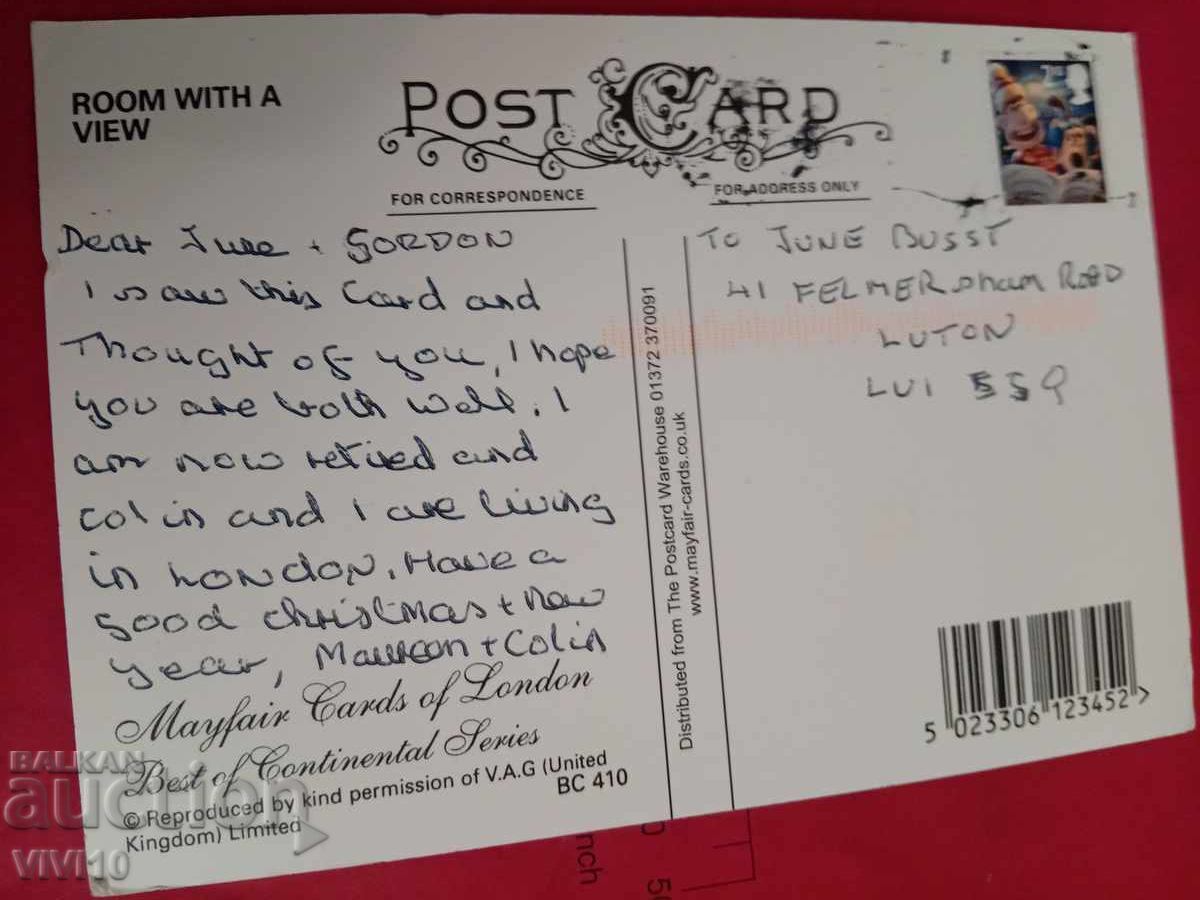 ROOM WITH A
VIEW
POST CARD
FOR CORRESPONDENCE
FOR ADDRESS ONLY
Dear June + GORDON
I saw this Card and
Thought of you, I hope
you are both well. I
am now retired and
Colin and I are living
in London. Have a
good christmas + New
year, Maureen + Colin
Mayfair Cards of London
Best of Continental Series
© Reproduced by kind permission of V.A.G (United
Kingdom) Limited
BC 410
Distributed from The Postcard Warehouse 01372 370091
www.mayfair-cards.co.uk
TO JUNE BUSST
41 FELMERSham ROAD
LUTON
LU1 5SQ
2nd
5 023306 123452 >
BALKAN
auction
VIVI10
nch